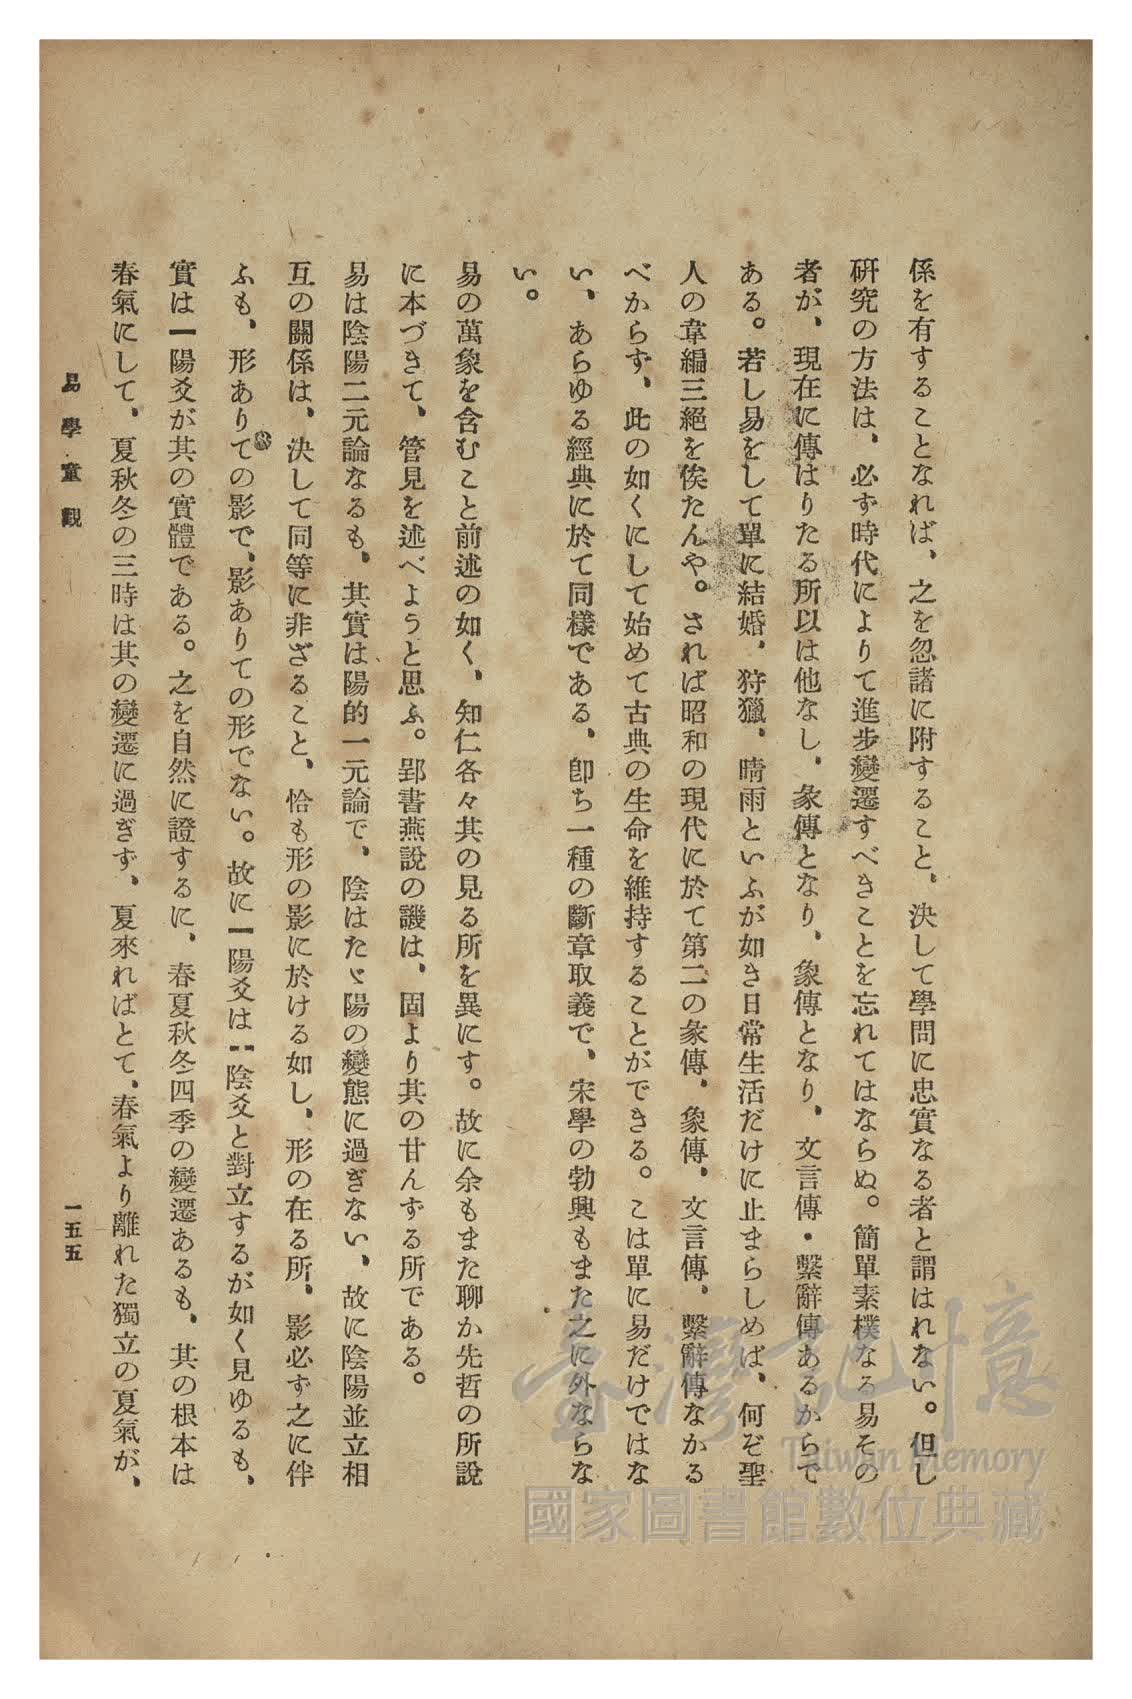 係を有することなれば、之を忽諸に附すること、決して學問に忠實なる者と謂はれない。但し
硏究の方法は、必ず時代によりて進步變遷すべきことを忘れてはならぬ。簡單素樸なる易その
者が、現在に傳はりたる所以は他なし、彖傳となり、象傳となり、文言傳・繫辭傳あるからで
ある。若し易をして單に結婚、狩獵、晴雨といふが如き日常生活だけに止まらしめば、何ぞ聖
人の韋編三絕を俟たんや。されば昭和の現代に於て第二の彖傳、象傳、文言傳、繫辭傳なかる
べからず、此の如くにして始めて古典の生命を維持することができる。こは單に易だけではな
い、あらゆる經典に於て同樣である、卽ち一種の斷章取義で、宋學の勃興もまた之に外ならな
い。
易の萬象を含むこと前述の如く、知仁各々其の見る所を異にす。故に余もまた聊か先哲の所說
に本づきて、管見を述べようと思ふ。郢書燕說の譏は、固より其の甘んずる所である。
易は陰陽二元論なるも、其實は陽的一元論で、陰はたゞ陽の變態に過ぎない、故に陰陽並立相
互の關係は、決して同等に非ざること、恰も形の影に於ける如し、形の在る所、影必ず之に伴
ふも、形ありての影で、影ありての形でない。故に⚊陽爻は⚋陰爻と對立するが如く見ゆるも、
實は⚊陽爻が其の實體である。之を自然に證するに、春夏秋冬四季の變遷あるも、其の根本は
春氣にして、夏秋冬の三時は其の變遷に過ぎず、夏來ればとて、春氣より離れた獨立の夏氣が、
易學童觀
一五五
臺灣記憶
Taiwan Memory
國家圖書館數位典藏